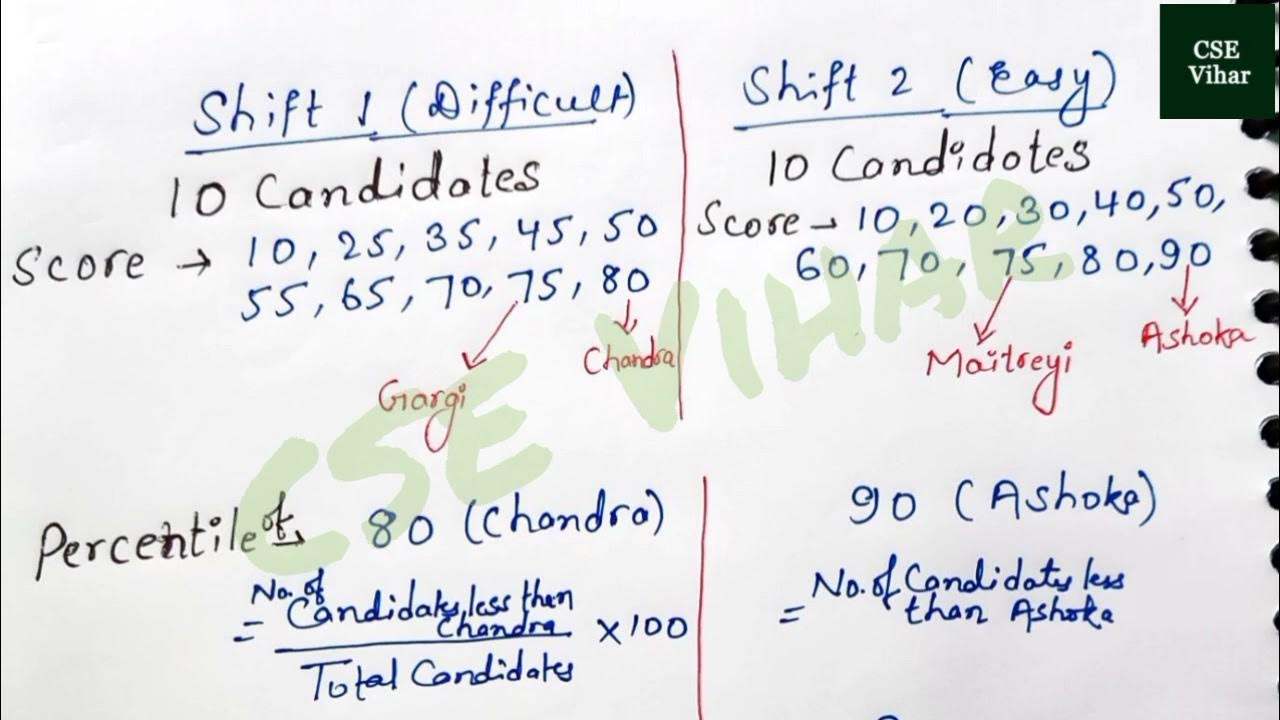 CSE
Vihar
Shift 1 (Difficult)
10 Candidates
Score → 10, 25, 35, 45, 50
55, 65, 70, 75, 80
Gargi
Chandra
Shift 2 (Easy)
10 Candidates
Score → 10, 20, 30, 40, 50,
60, 70, 75, 80, 90
Maitreyi
Ashoka
CSE VIHAR
Percentile of 80 (Chandra)
= No. of
Candidates less then
Chandra × 100
Total Candidates
90 (Ashoka)
= No. of Candidates less
than Ashoka